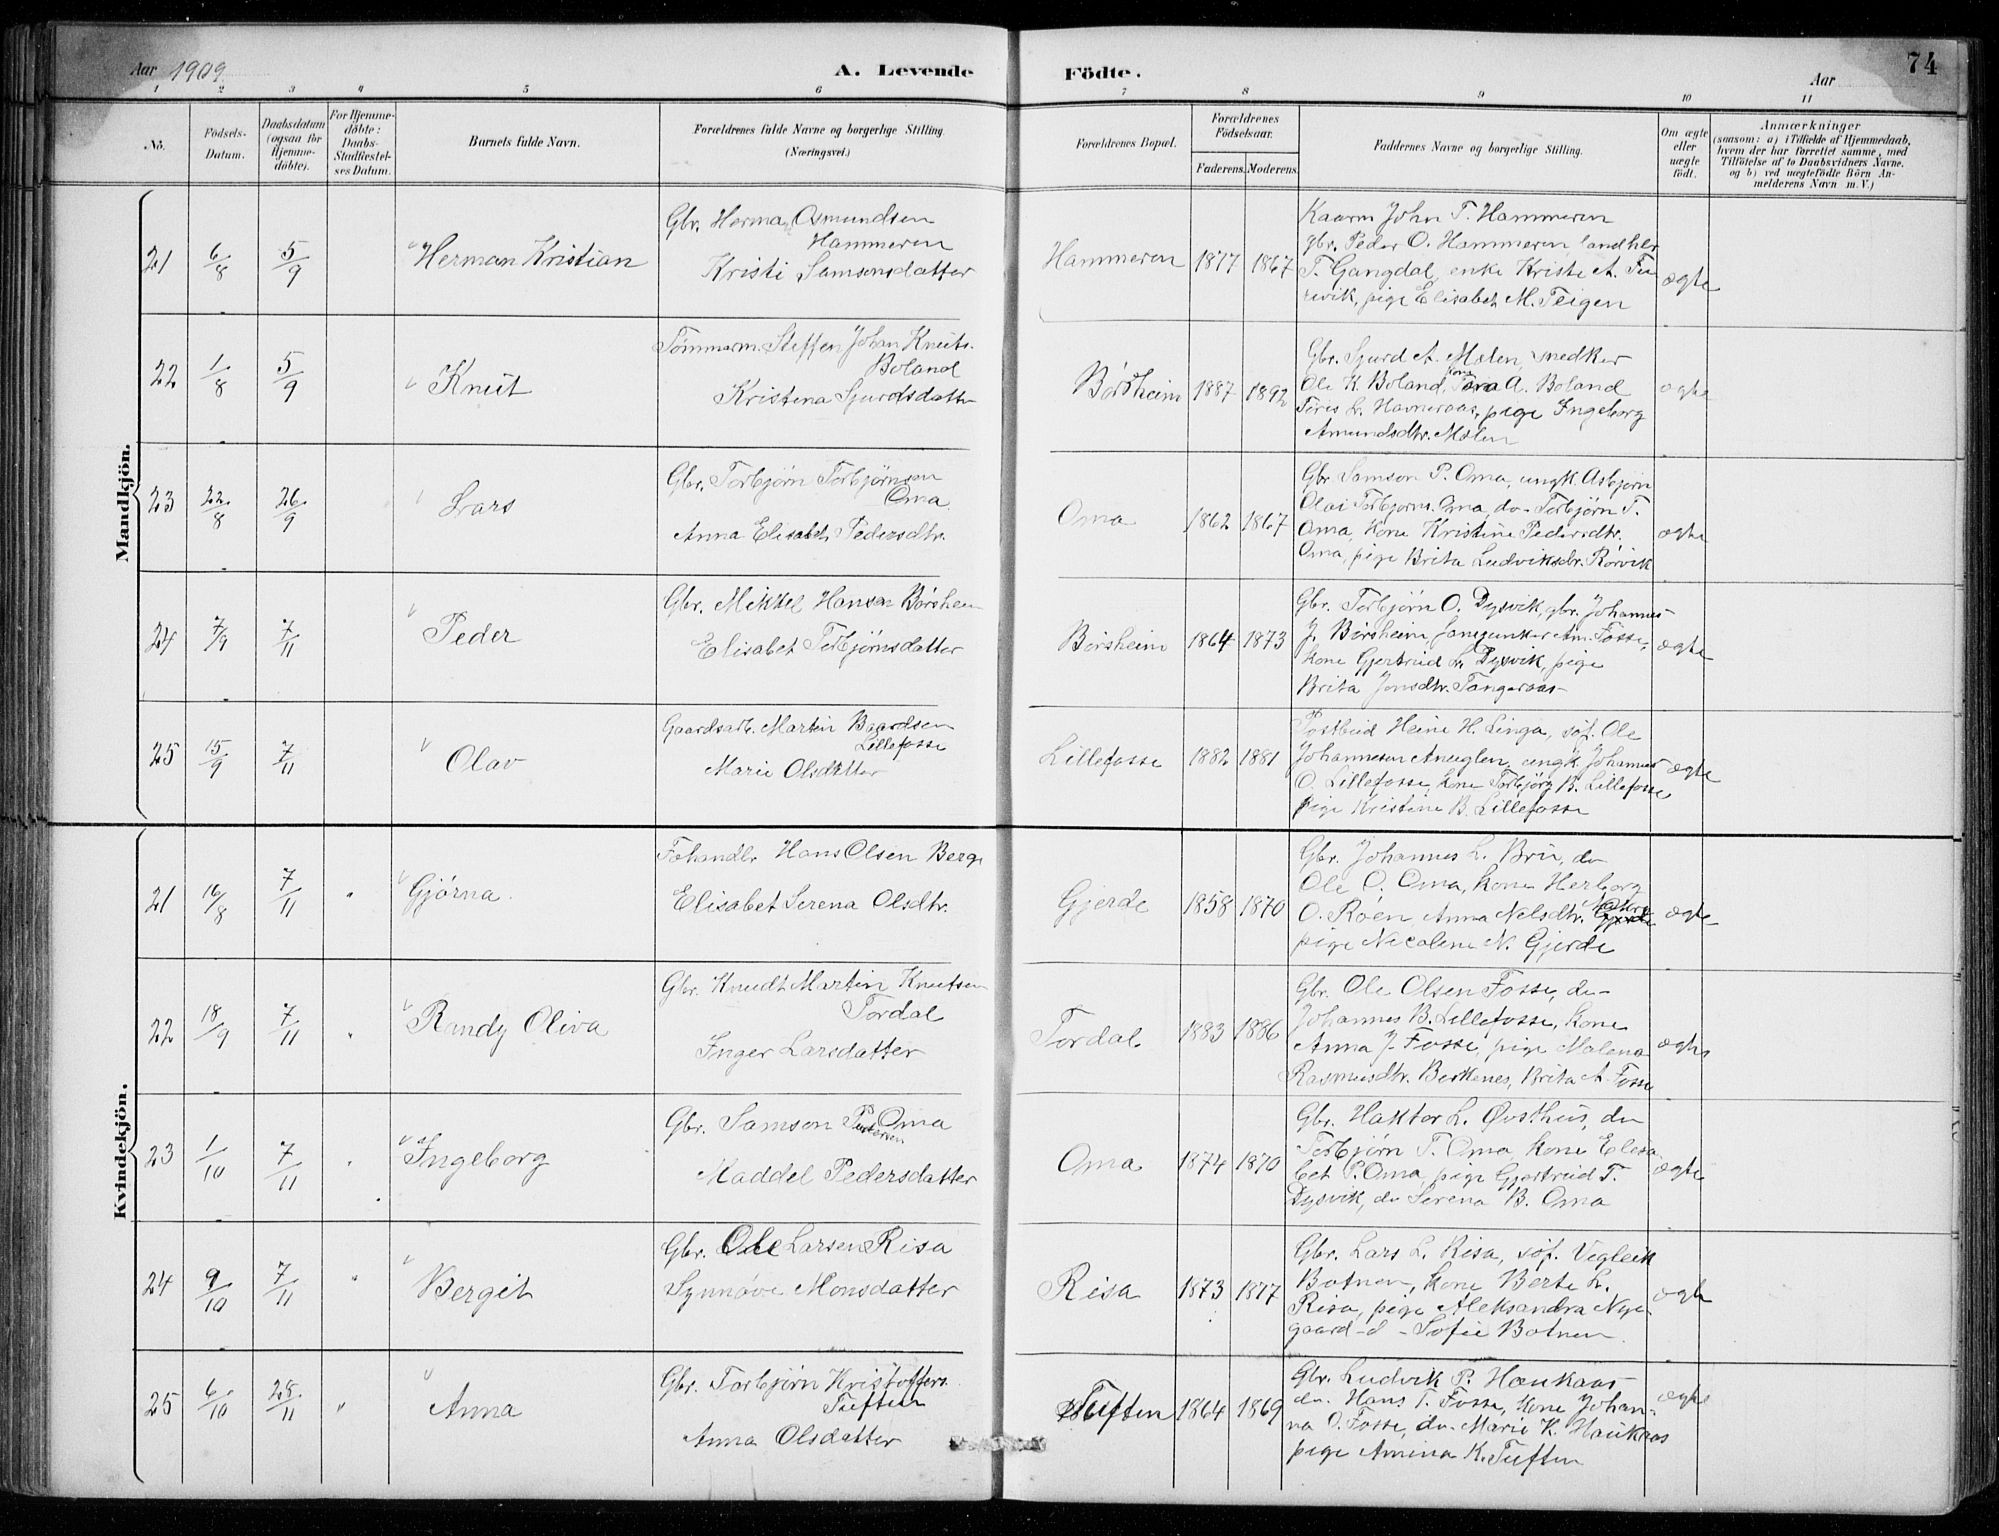 Aar 1909
A. Levende
Födte.
Aar
74
1 2 3 4 5 6 7 8 9 10 11
No.
Födsels-
Datum.
Daabsdatum
(ogsaa for
Hjemme-
döbte).
For Hjemme-
döbte:
Daabs-
Stadfæstel-
ses Datum.
Barnets fulde Navn.
Forældrenes fulde Navne og borgerlige Stilling.
(Næringsvei.)
Forældrenes Bopæl.
Forældrenes
Födselsaar.
Faderens. Moderens.
Faddernes Navne og borgerlige Stilling.
Om ægte
eller
uægte
födt.
Anmærkninger
(saasom: a) i Tilfælde af Hjemmedaab,
hvem der har forrettet samme, med
Tilföielse af to Daabsvidners Navne,
og b) ved uægtefödte Börn An-
melderens Navn m. V.)
Mandkjön.
21 6/8 5/9 Herman Kristian
Gbr. Herman Osmundsen
Hammeren
Kristi Samsonsdatter
Hammeren 1877 1867
Kaarm John T. Hammeren
gbr. Peder O. Hammeren landher
T. Gangdal, enke Kristi A.
vik, pige Elisabet M. Teigen
ægte
22 1/8 5/9 Knut
Tømmerm. Steffen Johan Knuts.
Boland
Kristina Sjurdsdatter
Børsheim 1887 1892
Gbr. Sjurd A. Mølen, snedker
Ole K. Boland, kone A. Boland
L. Havneraas, pige Ingeborg
Amundsdtr. Mølen
ægte
23 22/8 26/9 Lars
Gbr. Torbjørn Torbjørnsen
Oma
Anna Elisabet Pedersdtr.
Oma 1862 1867
Gbr. Samson P. Oma, ungk Asbjørn
Olai Torbjorns. Oma, do- Torbjørn T.
Oma, kone Kristine Pedersdtr.
Oma, pige Brita Ludviksdtr. Rørvik
ægte
24 7/9 7/11 Peder
Gbr. Mikkel Hansen Børsheim
Elisabet Torbjørnsdatter
Børsheim 1864 1873
Gbr. Torbjørn O. Dysvik, gbr. Johannes
J. Børsheim Am. Fosse,
kone Gjertrud L. Dysvik, pige
Brita Jonsdtr. Tangeraas-
ægte
25 15/9 7/11 Olav
Gaardsarb. Martin Baardsen
Lillefosse
Marie Olsdatter
Lillefosse 1882 1881
Postbud Heine H. Linga, søf. Ole
Johannesen Anuglen, ungk. Johannes
O. Lillefosse, kone Torbjörg B. Lillefosse
pige Kristine B. Lillefosse
ægte
Kvindekjön.
21 16/8 7/11 " Gjørna.
Fehandlr. Hans Olsen Berge
Elisabet Serena Olsdtr.
Gjerde 1858 1870
Gbr. Johannes L. Bru, do
Ole O. Oma, kone Herborg
O. Røen Anna Nelsdtr.
pige Nicolene N. Gjerde
ægte
22 18/9 7/11 " Randy Oliva
Gbr. Knudt Martin Knutsen
Tordal
Inger Larsdatter
Tordal. 1883 1886
Gbr. Ole Olsen Fosse, do-
Johannes B. Lillefosse, kone
Anna J. Fosse, pige Malena
Rasmusdtr. Berkenes, Brita A. Fosse
ægte
23 1/10 7/11 " Ingeborg
Gbr. Samson Pedersen Oma
Maddel Pedersdatter
Oma 1874 1870
Gbr. Haktor L. Øvsthus, do
Torbjørn T. Oma, kone Elisa
bet P. Oma, pige Gjertrud T.
Dysvik, do Serena B. Oma
ægte
24 9/10 7/11 " Bergit
Gbr. Ole Larsen Risa
Synnøve Monsdatter
Risa 1873 1877
Gbr. Lars L. Risa, søf. Vegleik
Botnen, kone Berte L.
Risa, pige Aleksandra Nye-
gaard -d- Sofie Botnen.
ægte
25 6/10 28/11 " Anna
Gbr. Torbjørn Kristoffers.
Tuften
Anna Olsdatter
Tuften 1864 1869
Gbr. Ludvik P. Haukaas
do. Hans T. Fosse, kone Johan-
na O. Fosse, do- Marie K. Haukaas
pige Amina K. Tuften
ægte